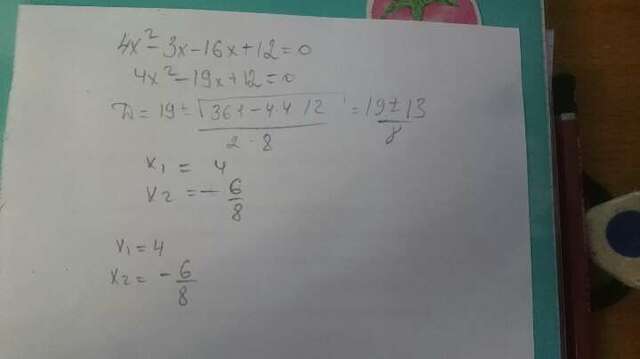 4x² - 3x - 16x + 12 = 0
4x² - 19x + 12 = 0
D = 19 ± √361 - 4·4·12 / 2·8 = 19 ± 13 / 8
x₁ = 4
x₂ = - 6/8
x₁ = 4
x₂ = - 6/8